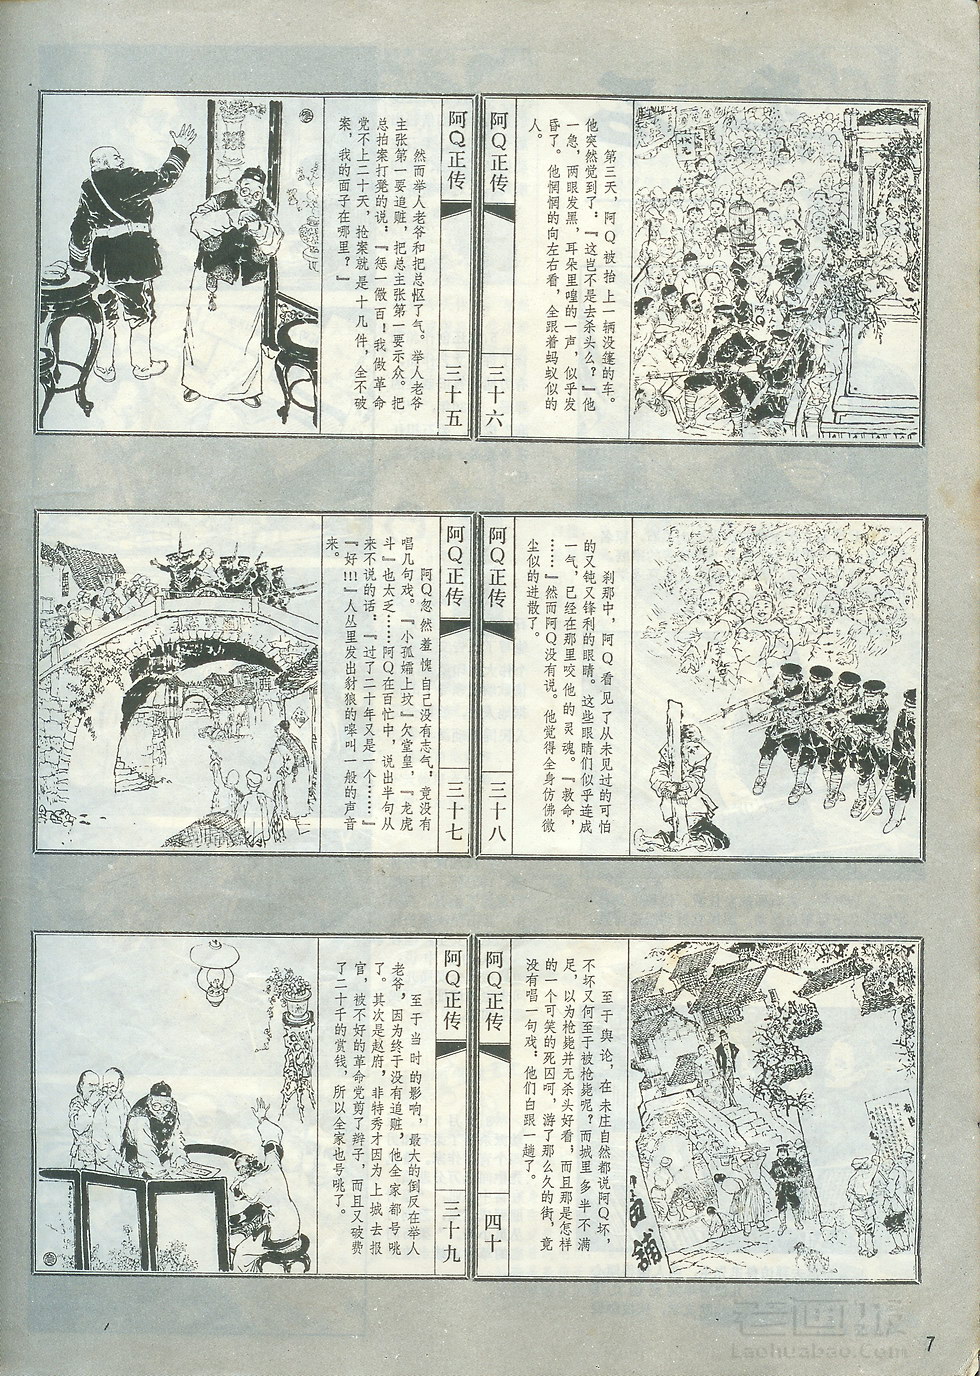 阿Q正传
三十五
然而举人老爷和把总怄了气。举人老爷
主张第一要追赃，把总主张第一要示众。把
总拍案打凳的说：『惩一儆百！我做革命
党不上二十天，抢案就是十几件，全不破
案，我的面子在哪里？』
阿Q正传
三十六
第三天，阿Q被抬上一辆没篷的车。
他突然觉到了：『这岂不是去杀头么？』他
一急，两眼发黑，耳朵里嗡的一声，似乎发
昏了。他惘惘的向左右看，全跟着蚂蚁似的
人。
阿Q正传
三十七
阿Q忽然羞愧自己没有志气：竟没有
唱几句戏。『小孤孀上坟』欠堂皇，『龙虎
斗』也太乏……阿Q在百忙中，说出半句从
来不说的话：『过了二十年又是一个……』
『好！！！』人丛里发出豺狼的嗥叫一般的声音
来。
阿Q正传
三十八
刹那中，阿Q看见了从未见过的可怕
的又钝又锋利的眼睛。这些眼睛们似乎连成
一气，已经在那里咬他的灵魂。『救命，
……』然而阿Q没有说。他觉得全身仿佛微
尘似的迸散了。
阿Q正传
三十九
至于当时的影响，最大的倒反在举人
老爷，因为终于没有追赃，他全家都号咷
了。其次是赵府，非特秀才因为上城去报
官，被不好的革命党剪了辫子，而且又破费
了二十千的赏钱，所以全家也号咷了。
阿Q正传
四十
至于舆论，在未庄自然都说阿Q坏，
不坏又何至于被枪毙呢？而城里多半不满
足，以为枪毙并无杀头好看，而且那是怎样
的一个可笑的死囚呵，游了那么久的街，竟
没有唱一句戏：他们白跟一趟了。
7
老画报
Laohuabao.Com